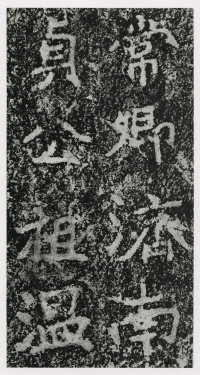 常卿濟南
貞公祖温